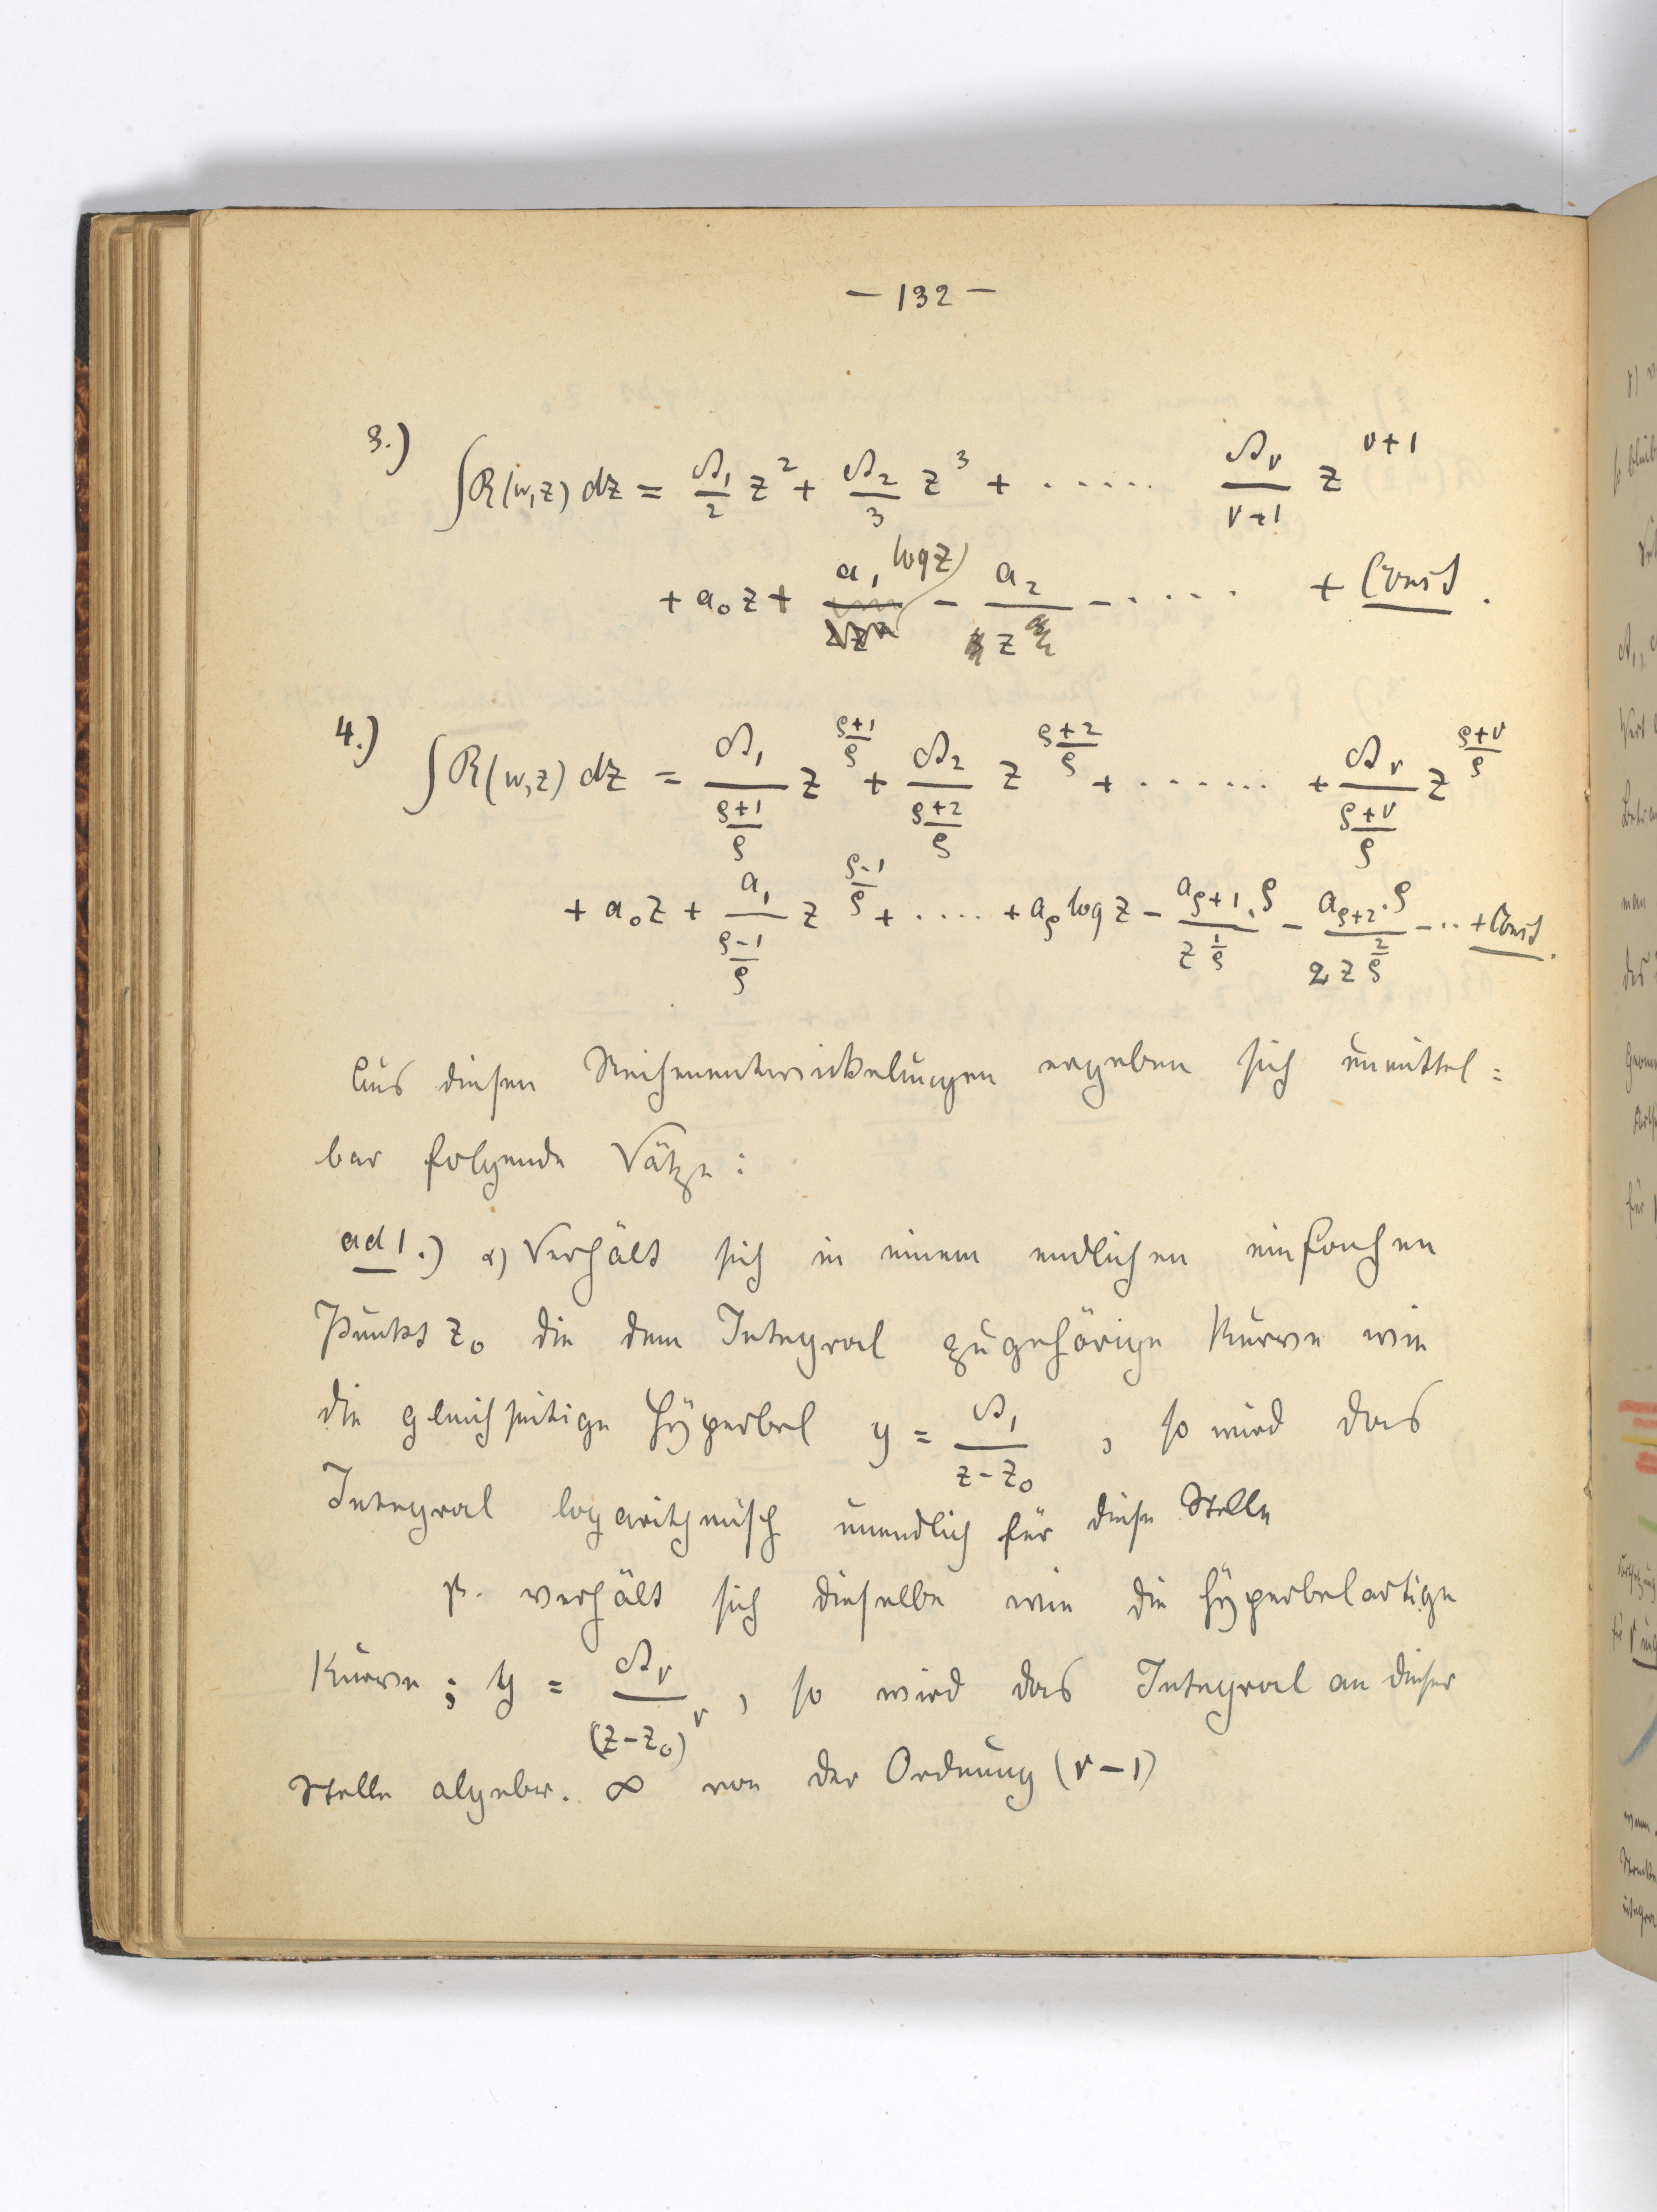 – 132 –
3.) ∫R(w,z) dz = A₁/2 z² + A₂/3 z³ + ..... Aν/(ν+1) z^(ν+1)
+ a₀z + a₁ log z – a₂/z – ..... + Const.
4.) ∫R(w,z) dz = A₁/((ρ+1)/ρ) z^((ρ+1)/ρ) + A₂/((ρ+2)/ρ) z^((ρ+2)/ρ) + ....... + Aν/((ρ+ν)/ρ) z^((ρ+ν)/ρ)
+ a₀z + a₁/((ρ-1)/ρ) z^((ρ-1)/ρ) + ..... + a_ρ log z – a_(ρ+1)·ρ/z^(1/ρ) – a_(ρ+2)·ρ/(2 z^(2/ρ)) – ... + Const.
Aus diesen Reihenentwickelungen ergeben sich unmittel=
bar folgende Sätze:
ad 1.) α) Verhält sich in einem endlichen einfachen
Punkt z₀ die dem Integral zugehörige Kurve wie
die gleichseitige Hyperbel y = A₁/(z-z₀), so wird das
Integral logarithmisch unendlich für diese Stelle
β. verhält sich dieselbe wie die hyperbelartige
Kurve; y = Aν/(z-z₀)^ν, so wird das Integral an dieser
Stelle algebr. ∞ von der Ordnung (ν-1)